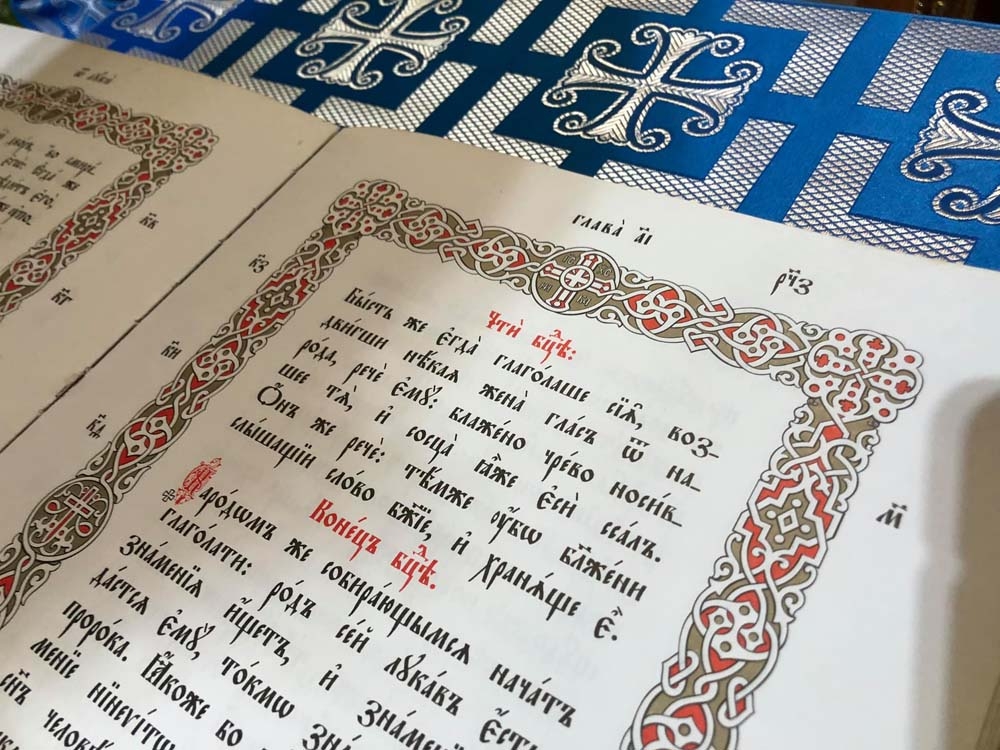 ѿ лꙋкѝ
к҃в
к҃г
глава̀ а҃і
рч҃з
Чтѝ бцⷣѣ:
Бы́сть же є҆гда̀ глаго́лаше сїѧ̑, воз_
дви́гши нѣ́каѧ жена̀ гла́съ ѿ на_
ро́да, речѐ є҆мꙋ̀: блаже́но чре́во носи́в_
шее тѧ̀, и҆ сосца̀ ꙗ҆̀же є҆сѝ сса́лъ.
Ѻ҆́нъ же речѐ: тѣ́мже ᲂу҆́бѡ бл҃же́ни
слы́шащїи сло́во бж҃їе, и҆ хранѧ́ще є҆̀.
Коне́цъ бцⷣѣ.
Наро́дѡмъ же собира́ющымсѧ нача́тъ
глаго́лати: ро́дъ се́й лꙋка́въ є҆́сть
зна́менїѧ и҆́щетъ, и҆ зна́мен
да́стсѧ є҆мꙋ̀, то́кмѡ зна́мен
проро́ка. Ꙗ҆́коже бо
ме́нїе нїнеѵі́тѡ
сн҃ъ человѣ́
к҃з
к҃и
м҃